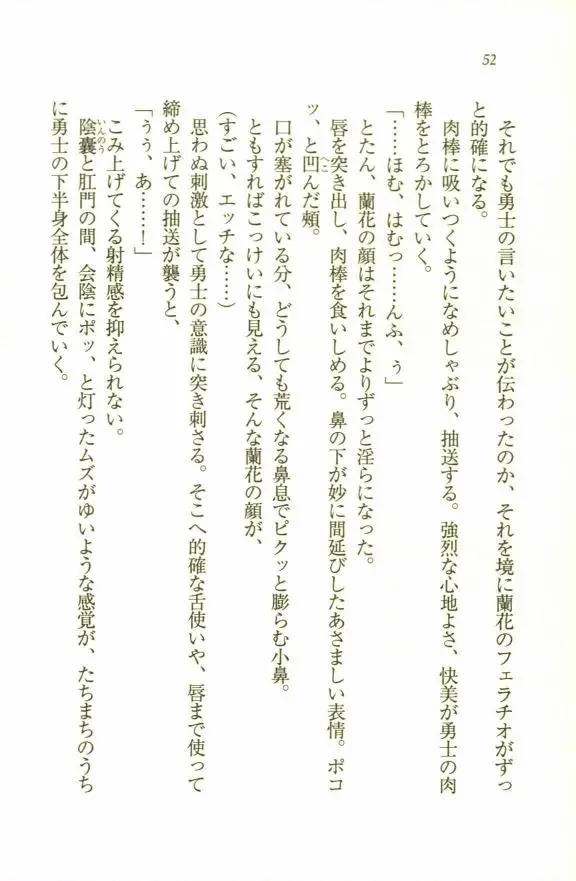 52
それでも勇士の言いたいことが伝わったのか、それを境に蘭花のフェラチオがずっ
と的確になる。
肉棒に吸いつくようになめしゃぶり、抽送する。強烈な心地よさ、快美が勇士の肉
棒をとろかしていく。
「……ほむ、はむっ……んふ、ぅ」
とたん、蘭花の顔はそれまでよりずっと淫らになった。
唇を突き出し、肉棒を食いしめる。鼻の下が妙に間延びしたあさましい表情。ポコ
ッ、と凹んだ頬。
口が塞がれている分、どうしても荒くなる鼻息でピクッと膨らむ小鼻。
ともすればこっけいにも見える、そんな蘭花の顔が、
(すごい、エッチな……)
思わぬ刺激として勇士の意識に突き刺さる。そこへ的確な舌使いや、唇まで使って
締め上げての抽送が襲うと、
「うぅ、あ……！」
こみ上げてくる射精感を抑えられない。
陰嚢と肛門の間、会陰にポッ、と灯ったムズがゆいような感覚が、たちまちのうち
に勇士の下半身全体を包んでいく。